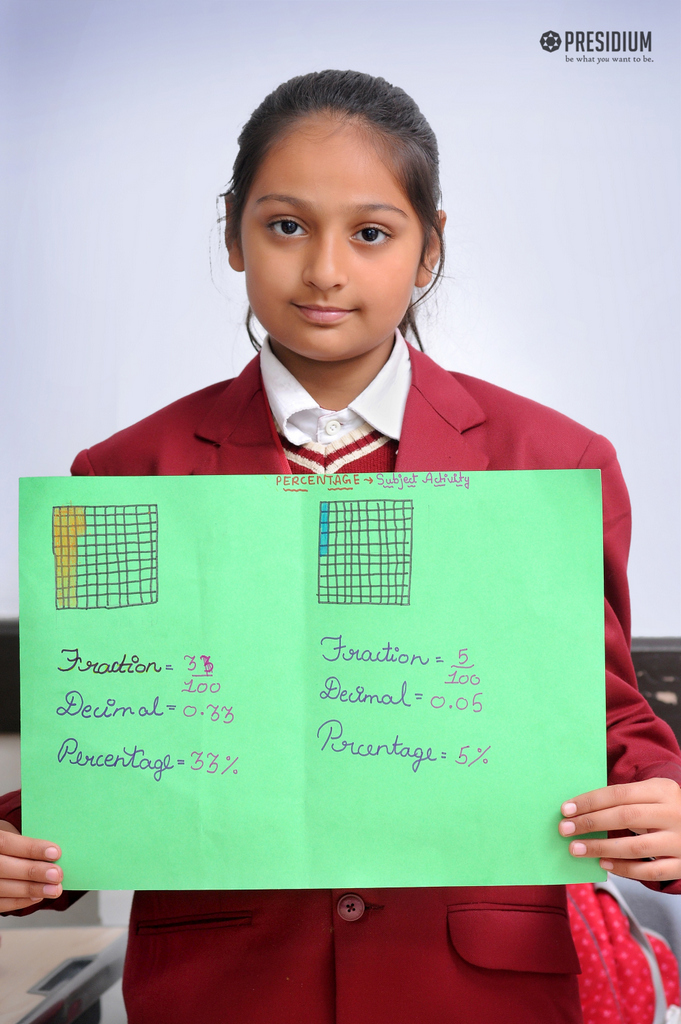 PRESIDIUM
be what you want to be.
PERCENTAGE → Subject Activity
Fraction = 33/100
Decimal = 0.33
Percentage = 33%
Fraction = 5/100
Decimal = 0.05
Percentage = 5%